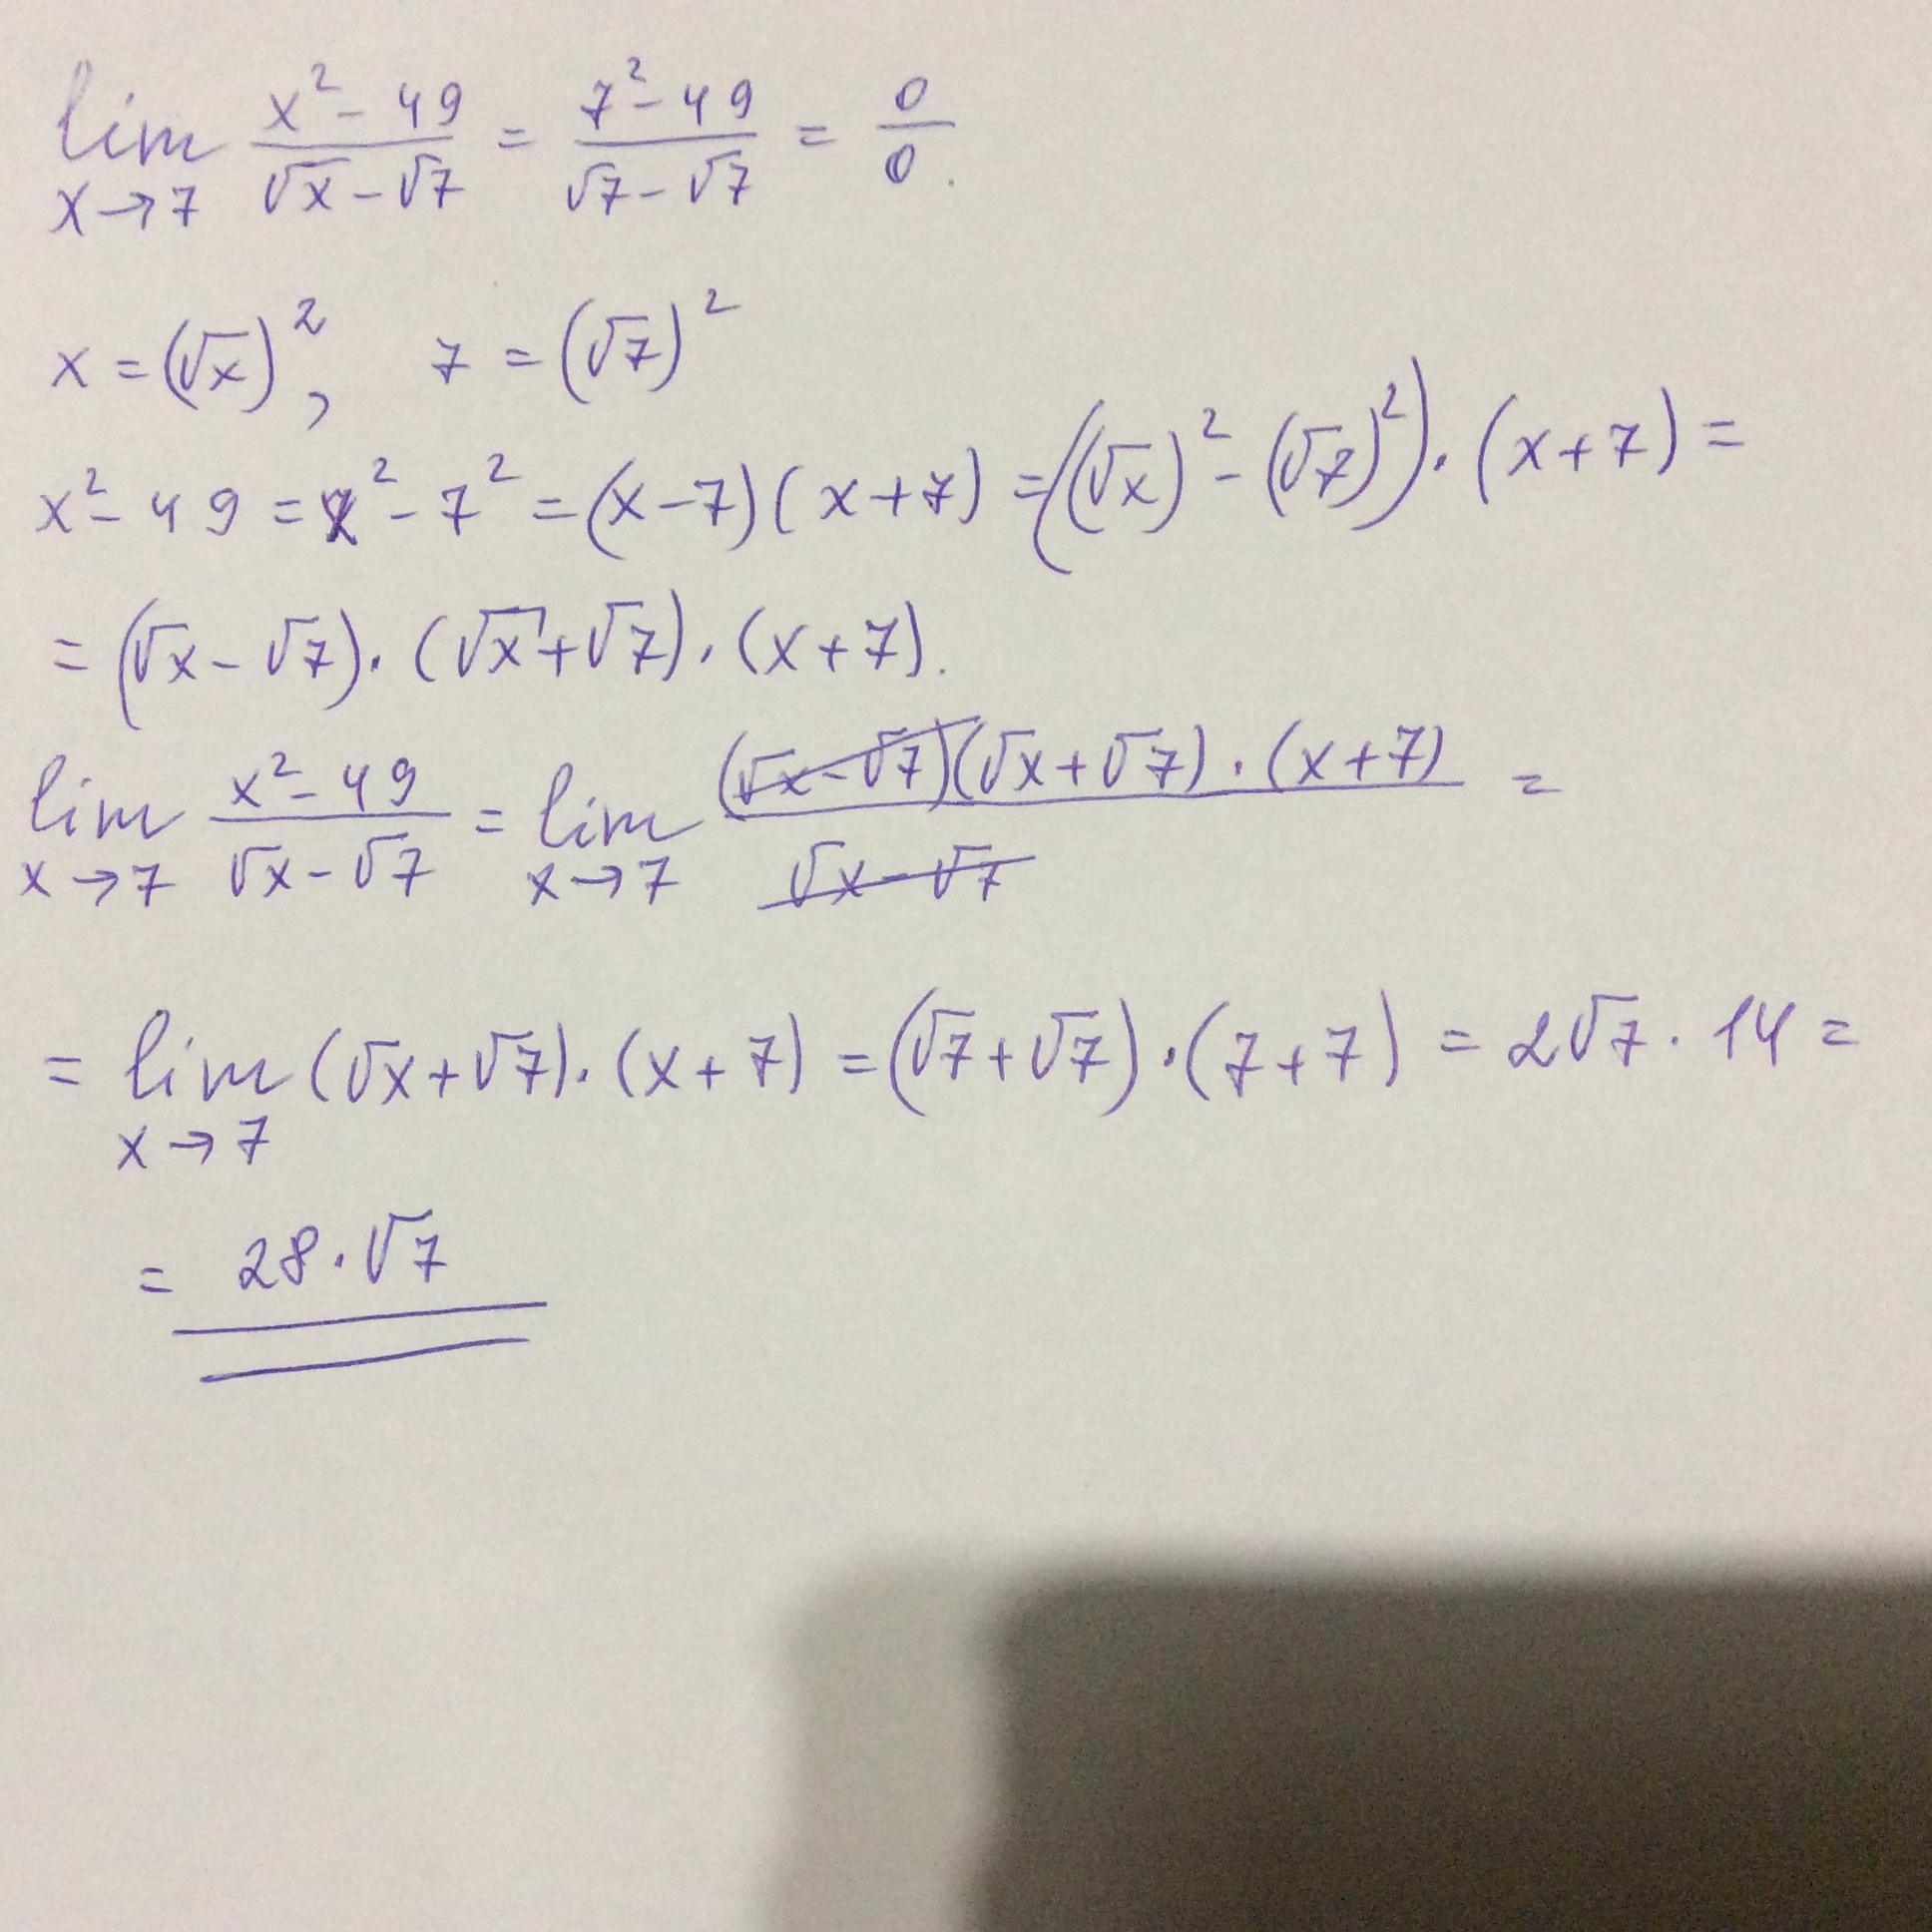 lim x→7 (x² - 49)/(√x - √7) = (7² - 49)/(√7 - √7) = 0/0.
x = (√x)², 7 = (√7)²
x² - 49 = x² - 7² = (x - 7)(x + 7) = ((√x)² - (√7)²) · (x + 7) =
= (√x - √7) · (√x + √7) · (x + 7).
lim x→7 (x² - 49)/(√x - √7) = lim x→7 ((√x - √7)(√x + √7) · (x + 7))/(√x - √7) =
= lim x→7 (√x + √7) · (x + 7) = (√7 + √7) · (7 + 7) = 2√7 · 14 =
= 28 · √7